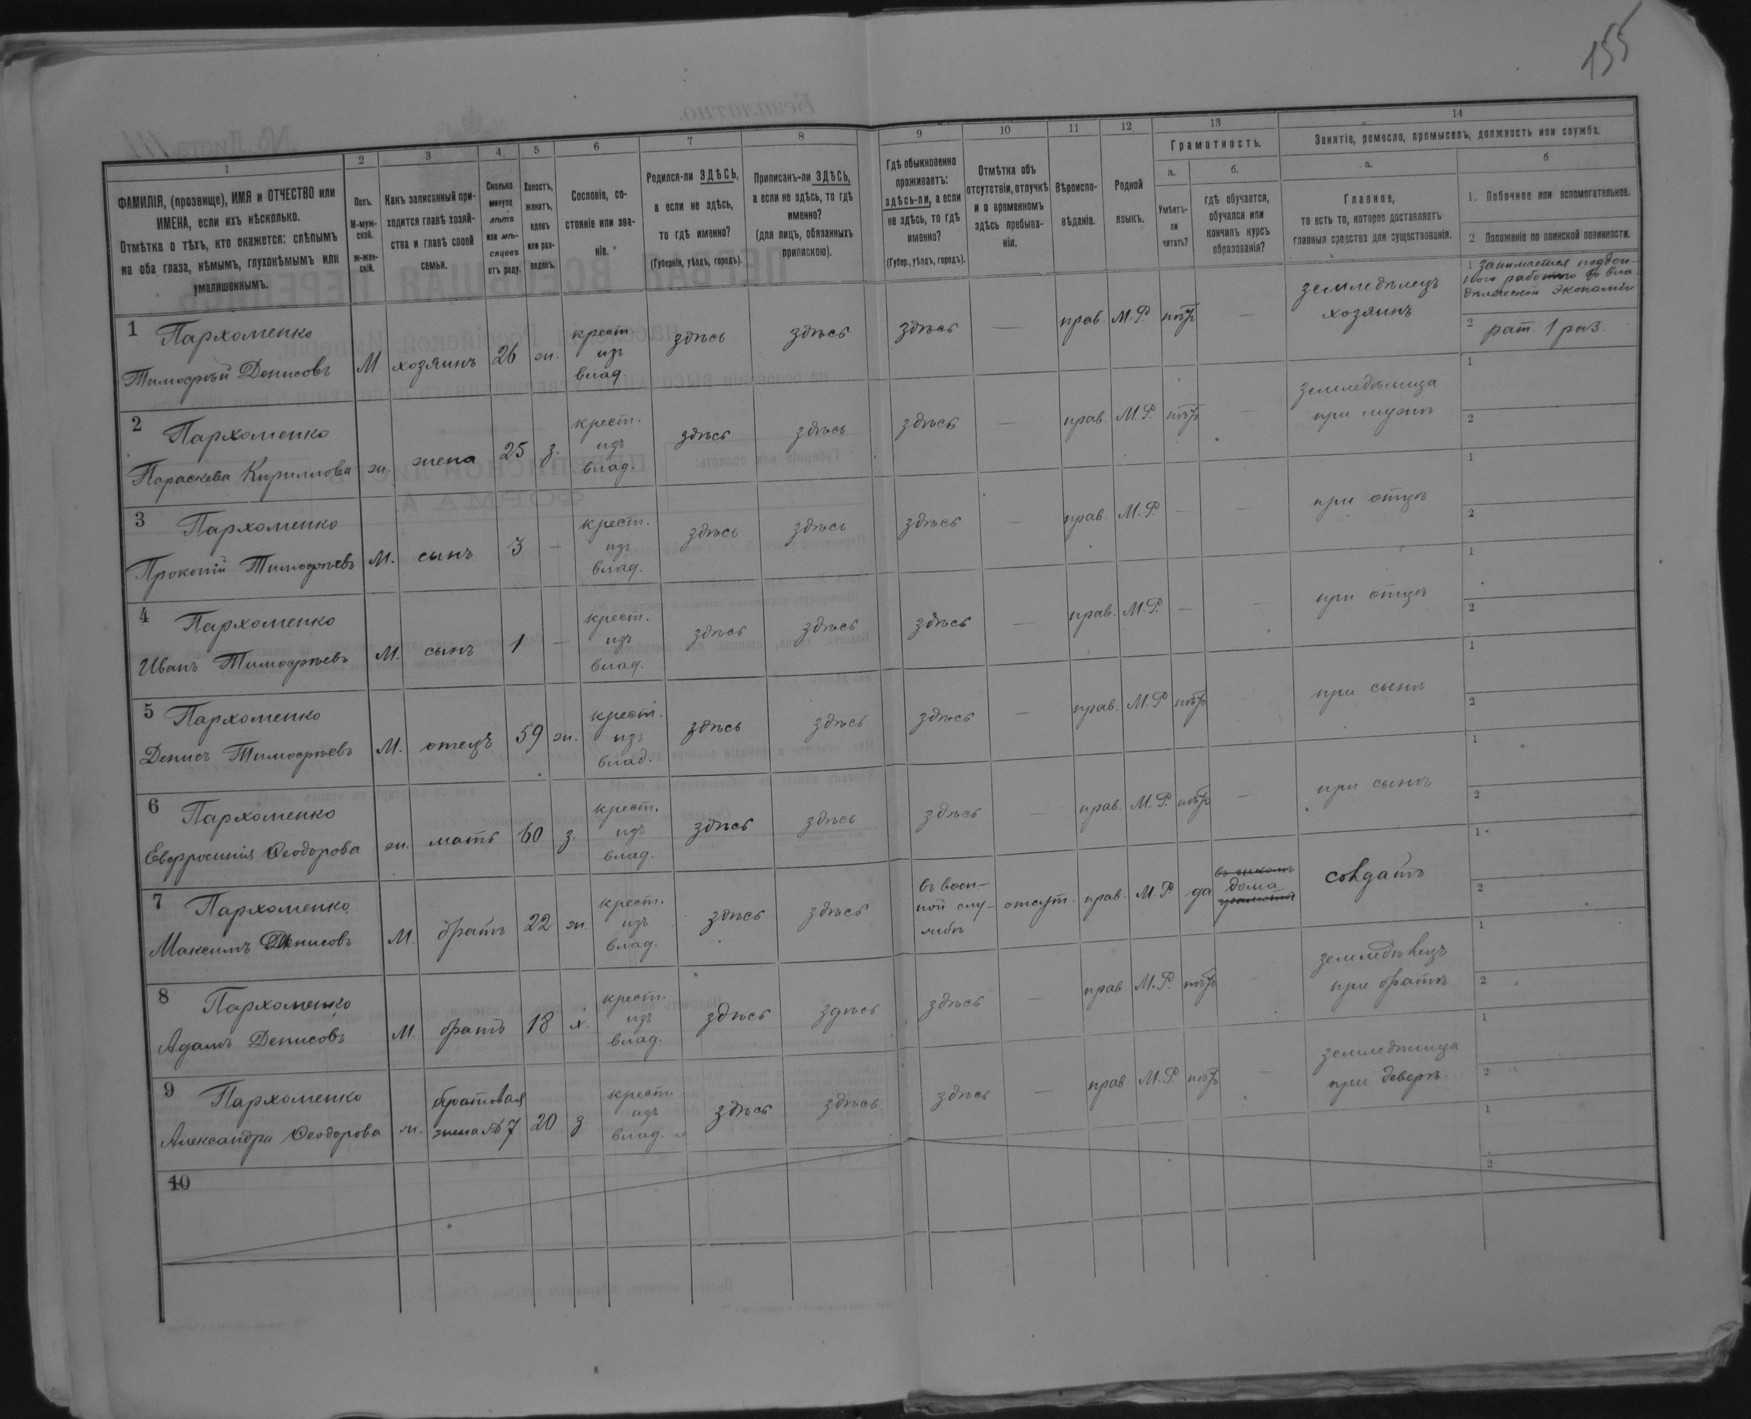 155
1
2
3
4
5
6
7
8
9
10
11
12
13
14
ФАМИЛІЯ, (прозвище), ИМЯ и ОТЧЕСТВО или
ИМЕНА, если ихъ нѣсколько.
Отмѣтка о тѣхъ, кто окажется: слѣпымъ
на оба глаза, нѣмымъ, глухонѣмымъ или
умалишеннымъ.
Полъ.
М-муж-
ской.
Ж-жен-
скій.
Какъ записанный при-
ходится главѣ хозяй-
ства и главѣ своей
семьи.
Сколько
минуло
лѣтъ
или мѣ-
сяцевъ
отъ роду.
Холостъ,
женатъ,
вдовъ
или раз-
веденъ.
Сословіе, со-
стояніе или зва-
ніе.
Родился-ли ЗДѢСЬ,
а если не здѣсь,
то гдѣ именно?
(Губернія, уѣздъ, городъ).
Приписанъ-ли ЗДѢСЬ,
а если не здѣсь, то гдѣ
именно?
(для лицъ, обязанныхъ
припискою).
Гдѣ обыкновенно
проживаетъ:
здѣсь-ли, а если
не здѣсь, то гдѣ
именно?
(Губер., уѣздъ, городъ).
Отмѣтка объ
отсутствіи, отлучкѣ
и о временномъ
здѣсь пребыва-
ніи.
Вѣроиспо-
вѣданіе.
Родной
языкъ.
Грамотность.
а.
Умѣетъ-
ли
читать?
б.
гдѣ обучается,
обучался или
кончилъ курсъ
образованія?
Занятіе, ремесло, промыселъ, должность или служба.
а.
Главное,
то есть то, которое доставляетъ
главныя средства для существованія.
б
1. Побочное или вспомогательное.
2 Положеніе по воинской повинности.
1 Пархоменко
Тимофѣй Денисовъ
М хозяинъ 26 ж.
крест.
изъ
влад.
здѣсь здѣсь здѣсь — прав. М.Р. нѣтъ —
земледѣлецъ
хозяинъ
1 занимается поден-
въ вла-
экономіи
2 рат. 1 раз.
2 Пархоменко
Параскева Кириллова
ж. жена 25 з.
крест.
изъ
влад.
здѣсь здѣсь здѣсь — прав. М.Р. нѣтъ —
земледѣлица
при мужѣ
1
2
3 Пархоменко
Прокопій Тимофѣевъ
М. сынъ 3 —
крест.
изъ
влад.
здѣсь здѣсь здѣсь — прав. М.Р. — —
при отцѣ
1
2
4 Пархоменко
Иванъ Тимофѣевъ
М. сынъ 1 —
крест.
изъ
влад.
здѣсь здѣсь здѣсь — прав. М.Р. — —
при отцѣ
1
2
5 Пархоменко
Денисъ Тимофѣевъ
М. отецъ 59 ж.
крест.
изъ
влад.
здѣсь здѣсь здѣсь — прав. М.Р. нѣтъ
при сынѣ
1
2
6 Пархоменко
Евфросинія Ѳеодорова
ж. мать 60 з.
крест.
изъ
влад.
здѣсь здѣсь здѣсь — прав. М.Р. нѣтъ —
при сынѣ
1
2
7 Пархоменко
Максимъ Денисовъ
М. братъ 22 ж.
крест.
изъ
влад.
здѣсь здѣсь
въ воен-
ной слу-
жбѣ
отсут. прав. М.Р. да
дома
солдатъ
1
2
8 Пархоменко
Адамъ Денисовъ
М. братъ 18 х.
крест.
изъ
влад.
здѣсь здѣсь здѣсь — прав. М.Р. нѣтъ —
земледѣлецъ
при братѣ
1
2
9 Пархоменко
Александра Ѳеодорова
ж.
братовая
жена № 7
20 з.
крест.
изъ
влад.
здѣсь здѣсь здѣсь — прав. М.Р. нѣтъ —
земледѣлица
при деверѣ
1
2
10
1
2